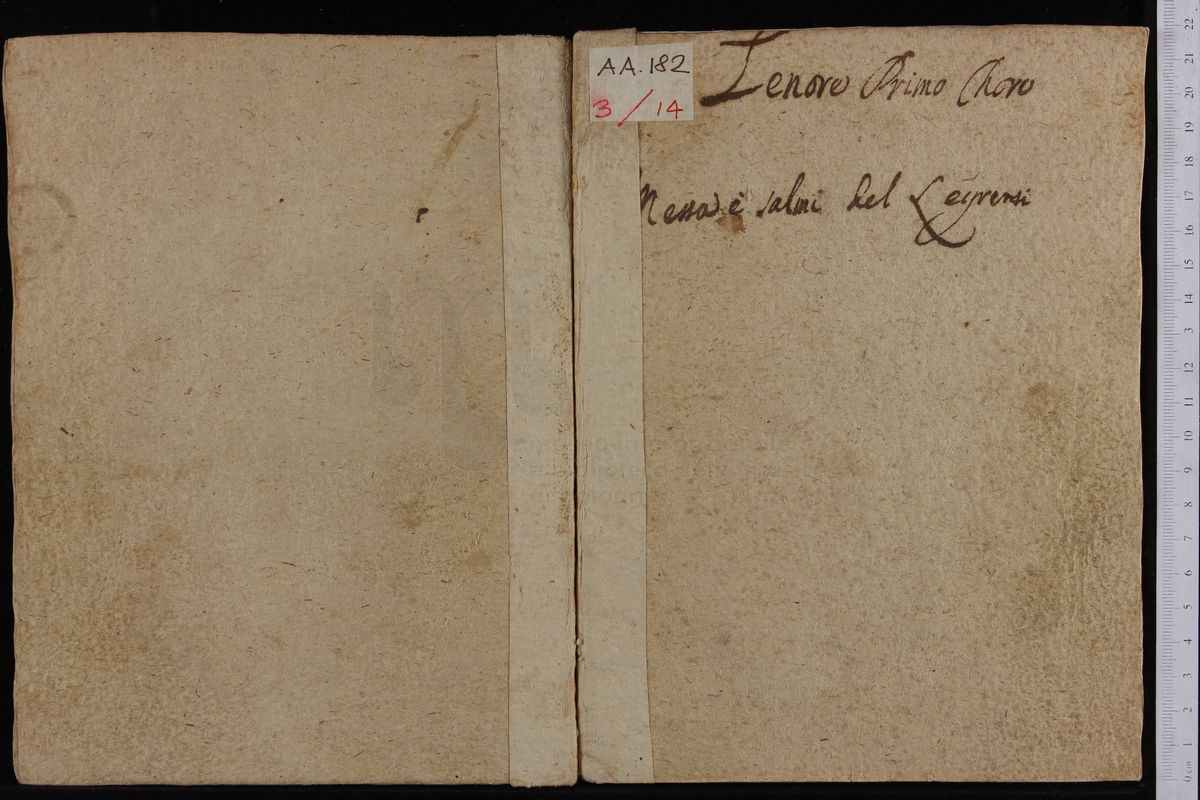 AA.182
3/14
Tenore Primo Choro
Messa e salmi del Legrensi